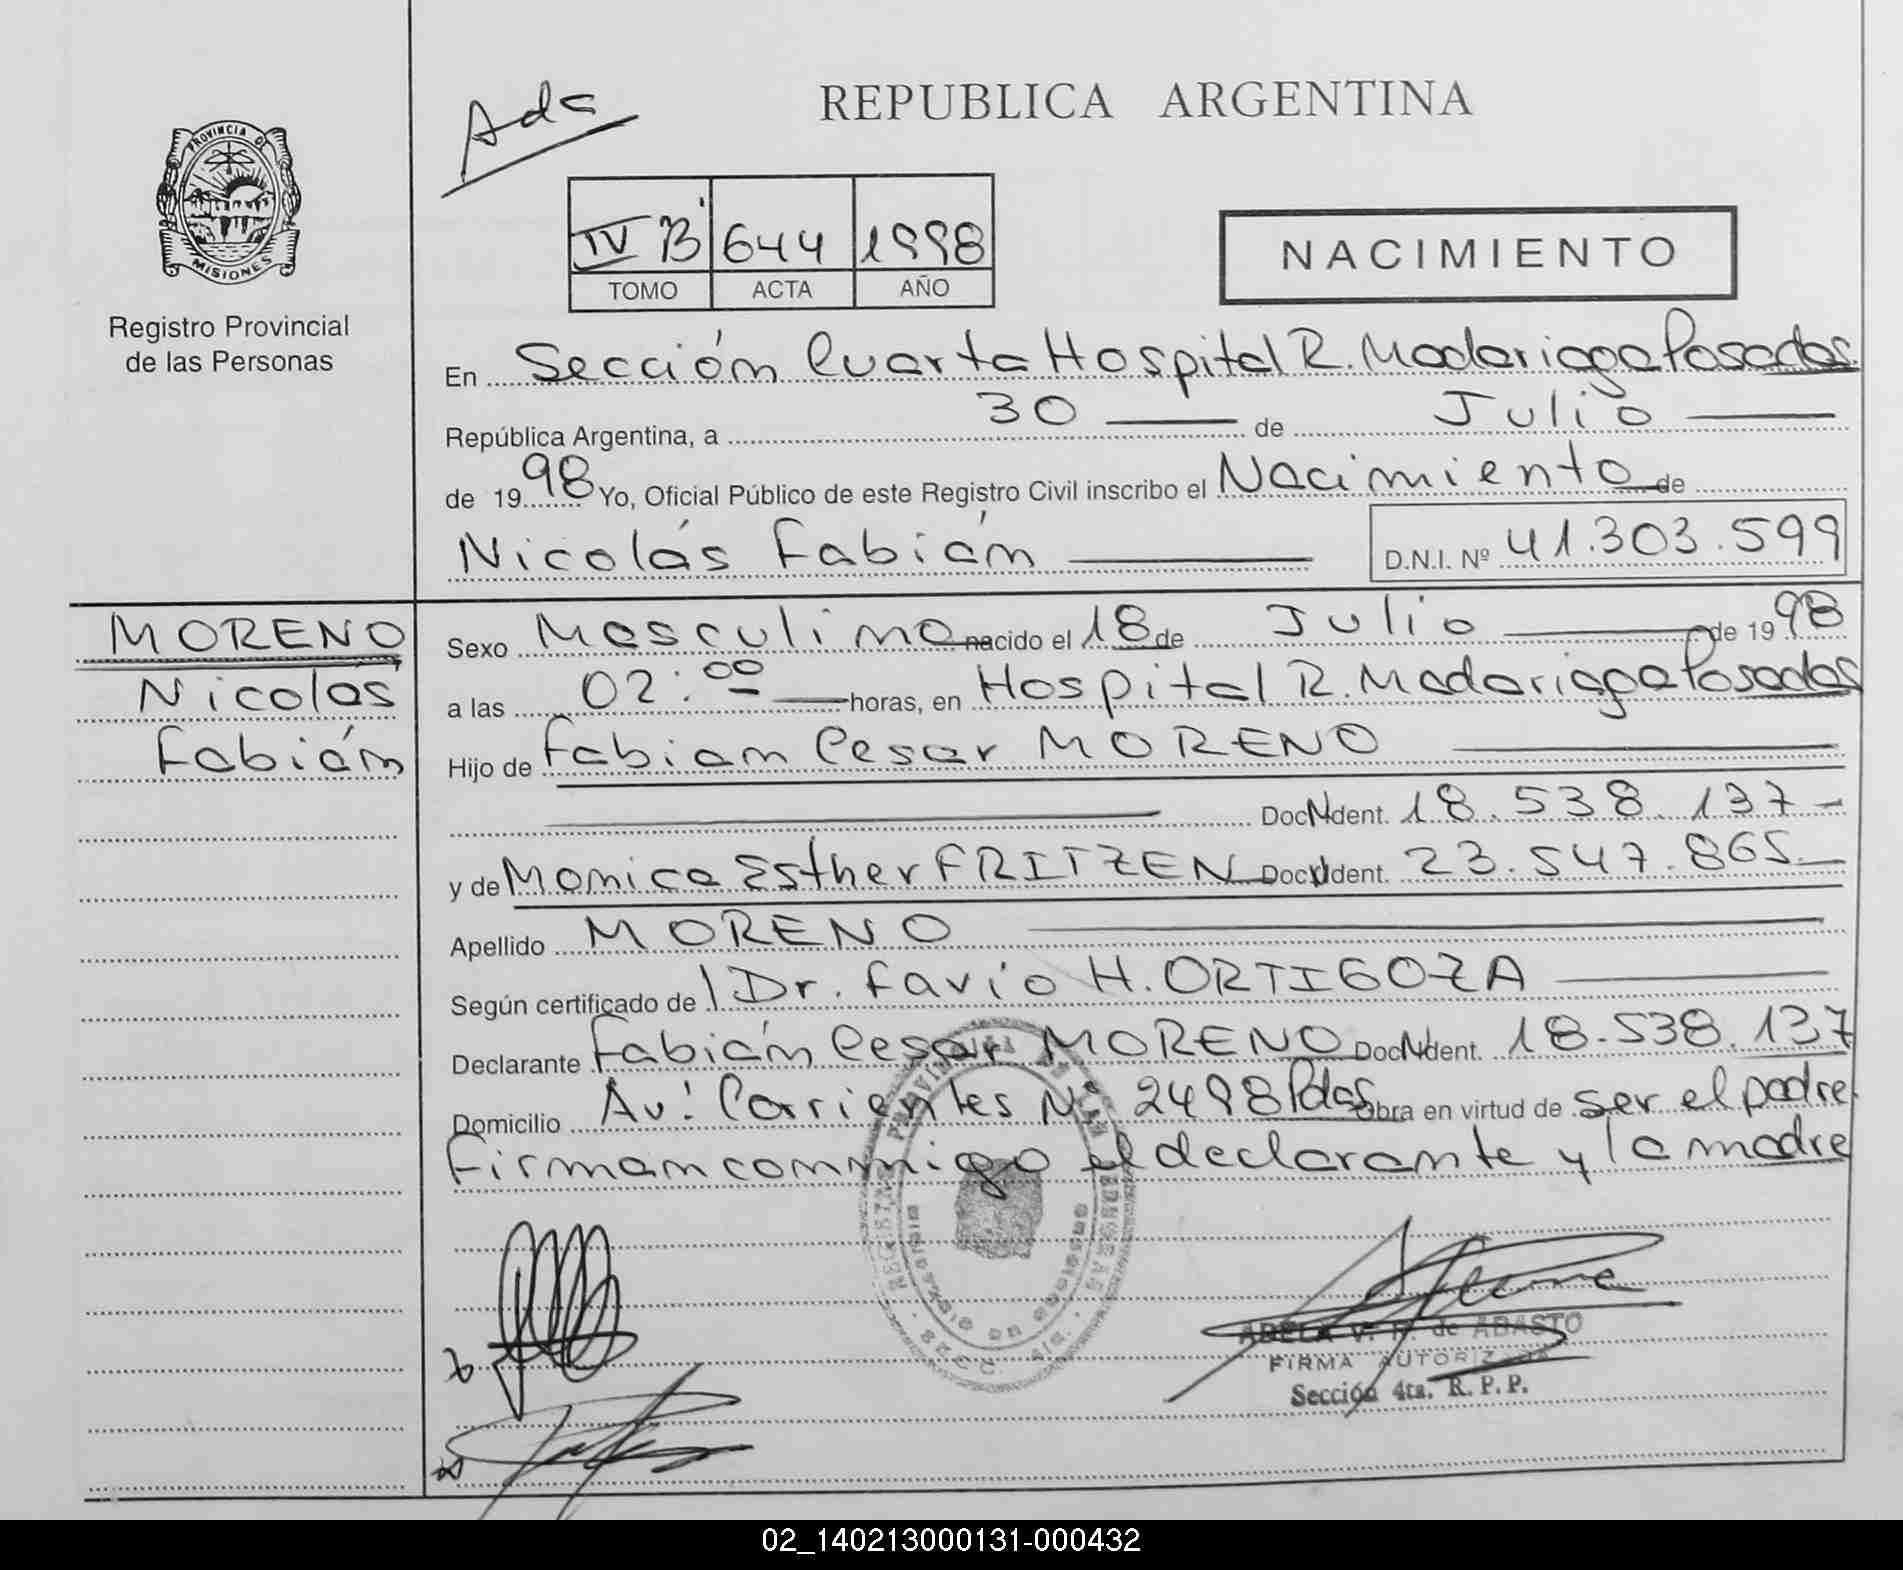 Ada
REPUBLICA ARGENTINA
PROVINCIA DE
MISIONES
Registro Provincial
de las Personas
IV B 644 1998
TOMO ACTA AÑO
NACIMIENTO
En Sección Cuarta Hospital R. Madariaga Posadas
República Argentina, a 30 de Julio
de 1998 Yo, Oficial Público de este Registro Civil inscribo el Nacimiento de
Nicolás Fabián D.N.I. Nº 41.303.599
MORENO
Nicolás
Fabián
Sexo Masculino nacido el 18 de Julio de 1998
a las 02:00 horas, en Hospital R. Madariaga Posadas
Hijo de Fabian Cesar MORENO
Doc. Ident. 18.538.137-
y de Monica Esther FRITZEN Doc. Ident. 23.547.865
Apellido MORENO
Según certificado de Dr. Favio H. ORTIGOZA
Declarante Fabián Cesar MORENO Doc. Ident. 18.538.137
Domicilio Av: Corrientes Nº 2498 Pdas obra en virtud de ser el padre
Firman conmigo el declarante y la madre
ADELA V. de ABASTO
FIRMA AUTORIZADA
Sección 4ta. R. P. P.
02_140213000131-000432